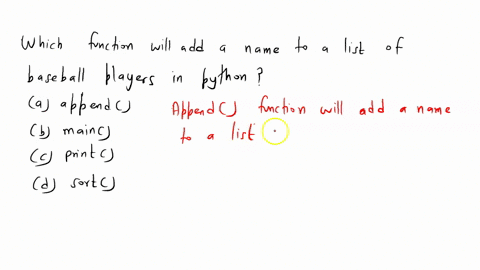 Which function will add a name to a list of
baseball players in python?
(a) append()
(b) main()
(c) print()
(d) sort()
Append() function will add a name
to a list .